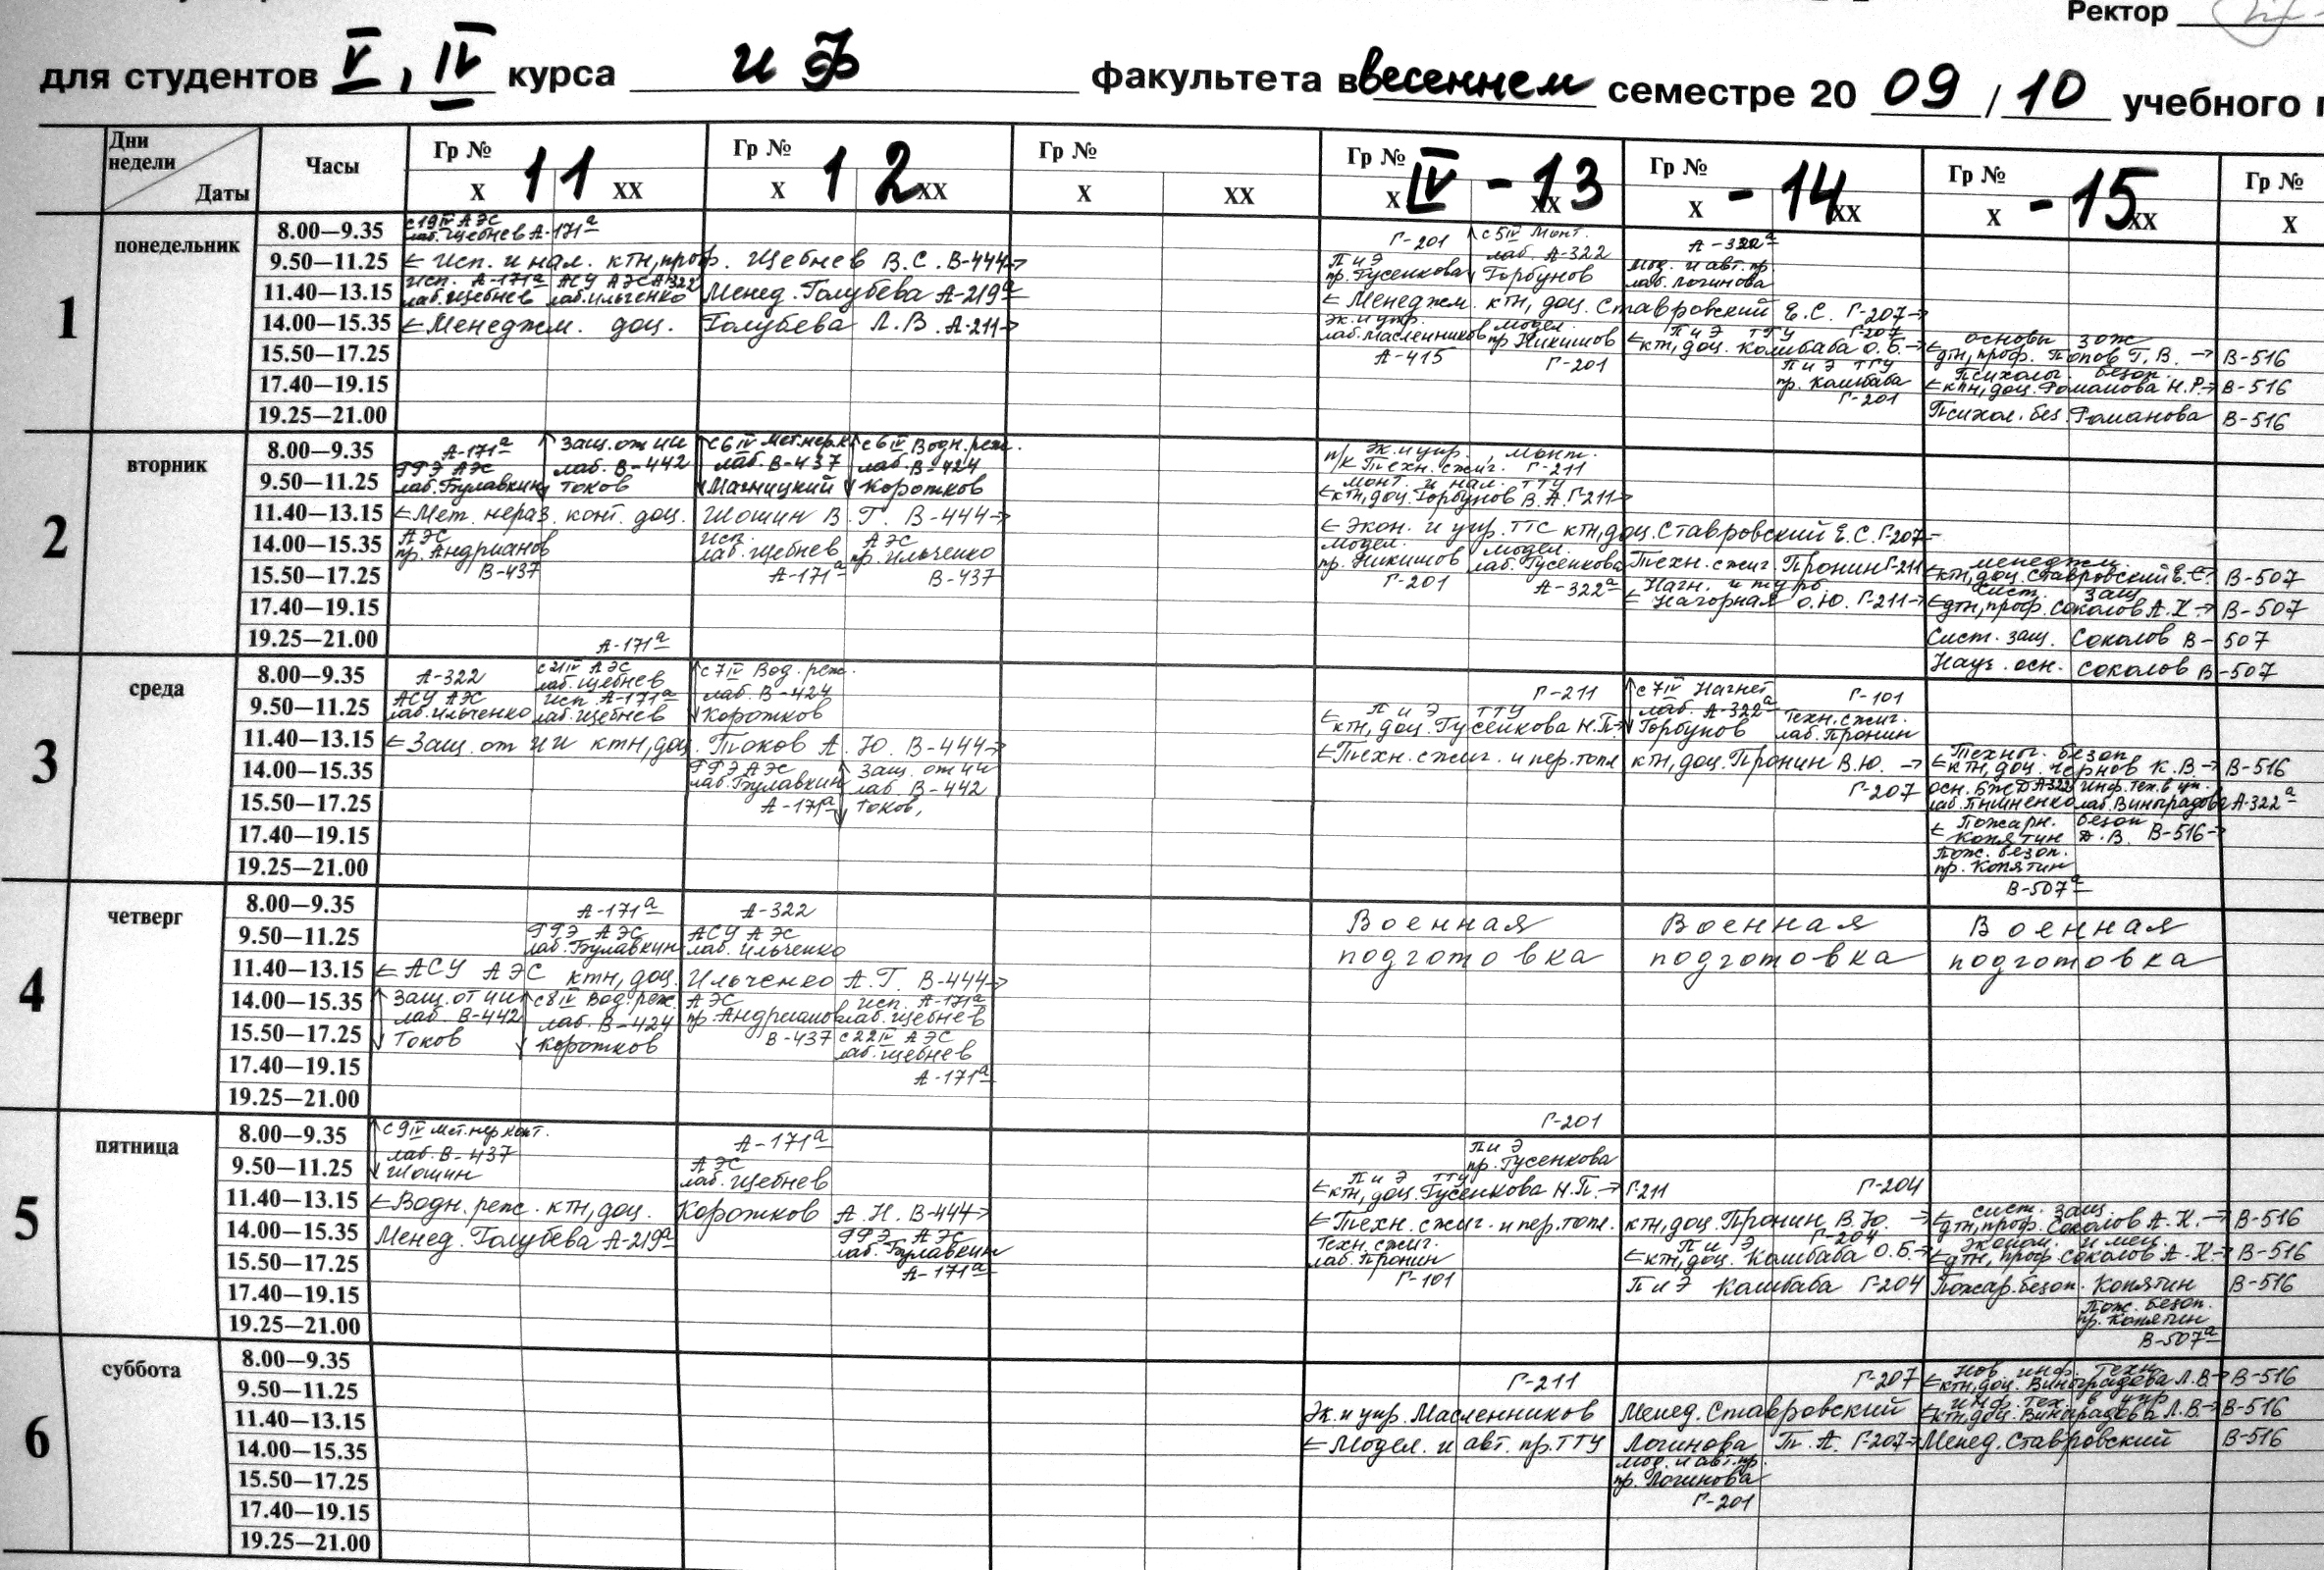 Ректор
для студентов V, IV курса иф факультета в весеннем семестре 20 09/10 учебного
Дни недели Даты Часы Гр № 11 X XX Гр № 12 X XX Гр № X XX Гр № IV - 13 X XX Гр № - 14 X XX Гр № - 15 X XX Гр № X
1 понедельник
8.00—9.35 с 19 IV АЭС лаб. Щебнев А-171а
Г-201 с 5 IV Монт. А-322а
9.50—11.25 Исп. и нал. ктн, проф. Щебнев В.С. В-444
ПиЭ пр. Гусенкова лаб. А-322 Горбунов Мод. и авт. пр. лаб. Логинова
11.40—13.15 Исп. А-171а лаб. Щебнев АСУ АЭС А-322 лаб. Ильченко Менед. Голубева А-219а
Менеджм. ктн, доц. Ставровский Е.С. Г-207
14.00—15.35 Менеджм. доц. Голубева Л.В. А-211
Эк. и упр. лаб. Масленников модел. пр Никишов ПиЭ ТТУ Г-207 ктн, доц. Колибаба О.Б. основы зож дтн, проф. Попов Г.В. В-516
15.50—17.25 А-415 Г-201
17.40—19.15 ПиЭ ТТУ пр. Колибаба Г-201 Психолог. безоп. кпн, доц. Романова Н.Р. В-516
19.25—21.00 Психол. без. Романова В-516
2 вторник
8.00—9.35 А-171а Защ. от ии с 6 IV Мет. нер. к с 6 IV Водн. реж.
лаб. В-442 лаб. В-437 лаб. В-424 п/к Эк. и упр., монт. Техн. сжиг. Г-211
9.50—11.25 ФГЭ АЭС лаб. Булавкин Токов Магницкий Коротков
монт. и нал. ТТУ ктн, доц. Горбунов В.А. Г-211
11.40—13.15 Мет. нераз. конт. доц. Шошин В.Г. В-444
Экон. и упр. ТТС ктн, доц. Ставровский Е.С. Г-207
14.00—15.35 АЭС пр. Андрианов Исп. лаб. Щебнев АЭС пр. Ильченко
В-437 А-171а В-437
15.50—17.25 модел. пр. Никишов модел. лаб. Гусенкова Техн. сжиг. Пронин Г-211 менеджм. ктн, доц. Ставровский Е.С. В-507
Г-201 А-322а
17.40—19.15 Нагн. и турб Нагорная О.Ю. Г-211 Сист. защ. дтн, проф. Соколов А.К. В-507
19.25—21.00 Сист. защ. Соколов В-507
А-171а
Науч. осн. Соколов В-507
3 среда
8.00—9.35 А-322 с 21 IV АЭС лаб. Щебнев с 7 IV Вод. реж.
лаб. В-424 Г-211 с 7 IV Нагнет Г-101
9.50—11.25 АСУ АЭС лаб. Ильченко Исп. А-171а лаб. Щебнев Коротков
ПиЭ ТТУ ктн, доц. Гусенкова Н.П. лаб. А-322а Горбунов Техн. сжиг. лаб. Пронин
11.40—13.15 Защ. от ИИ ктн, доц. Токов А.Ю. В-444
Техн. сжиг. и пер. топл ктн, доц. Пронин В.Ю. Техног. безоп ктн, доц. Чернов К.В. В-516
14.00—15.35 ФГЭ АЭС лаб. Булавкин Защ. от ии лаб. В-442
Г-207 осн. БЖД А-322 лаб. Пышненко инф. тех. в уп. лаб. Виноградова А-322а
15.50—17.25 А-171а Токов,
17.40—19.15 Пожарн. безоп Копятин Д.В. В-516
19.25—21.00 Пож. безоп. пр. Копятин
В-507а
4 четверг
8.00—9.35 А-171а А-322
9.50—11.25 ФГЭ АЭС лаб. Булавкин АСУ АЭС лаб. Ильченко
Военная подготовка Военная подготовка Военная подготовка
11.40—13.15 АСУ АЭС ктн, доц. Ильченко А.Г. В-444
14.00—15.35 Защ. от ИИ с 8 IV Вод. реж. АЭС пр. Андрианов Исп. А-171а лаб. Щебнев
лаб. В-442 лаб. В-424
15.50—17.25 Токов Коротков В-437 с 22 IV АЭС лаб. Щебнев
17.40—19.15 А-171а
19.25—21.00
Г-201
5 пятница
8.00—9.35 с 9 IV мет. нер конт. А-171а
лаб. В-437 ПиЭ пр. Гусенкова
9.50—11.25 Шошин АЭС лаб. Щебнев
ПиЭ ТТУ ктн, доц. Гусенкова Н.П. Г-211 Г-204
11.40—13.15 Водн. реж. ктн, доц. Коротков А.Н. В-444
Техн. сжиг. и пер. топл. ктн, доц. Пронин В.Ю. сист. защ. дтн, проф. Соколов А.К. В-516
14.00—15.35 Менед. Голубева А-219а ФГЭ АЭС лаб. Булавкин
Техн. сжиг. лаб. Пронин ПиЭ Г-204 ктн, доц. Колибаба О.Б. Эконом. и мен. дтн, проф Соколов А.К. В-516
15.50—17.25 А-171а
Г-101 ПиЭ Колибаба Г-204 Пожар. безоп. Копятин В-516
17.40—19.15
19.25—21.00 Пож. безоп. пр. Копятин
В-507а
6 суббота
8.00—9.35 Г-211 Г-207 Нов. инф. техн ктн, доц. Виноградова Л.В. В-516
9.50—11.25 Эк. и упр. Масленников Менед. Ставровский инф. тех. в упр ктн, доц. Виноградова Л.В. В-516
11.40—13.15 Модел. и авт. пр. ТТУ Логинова Т.А. Г-207 Менед. Ставровский В-516
14.00—15.35 мод. и авт. пр. пр. Логинова
15.50—17.25 Г-201
17.40—19.15
19.25—21.00